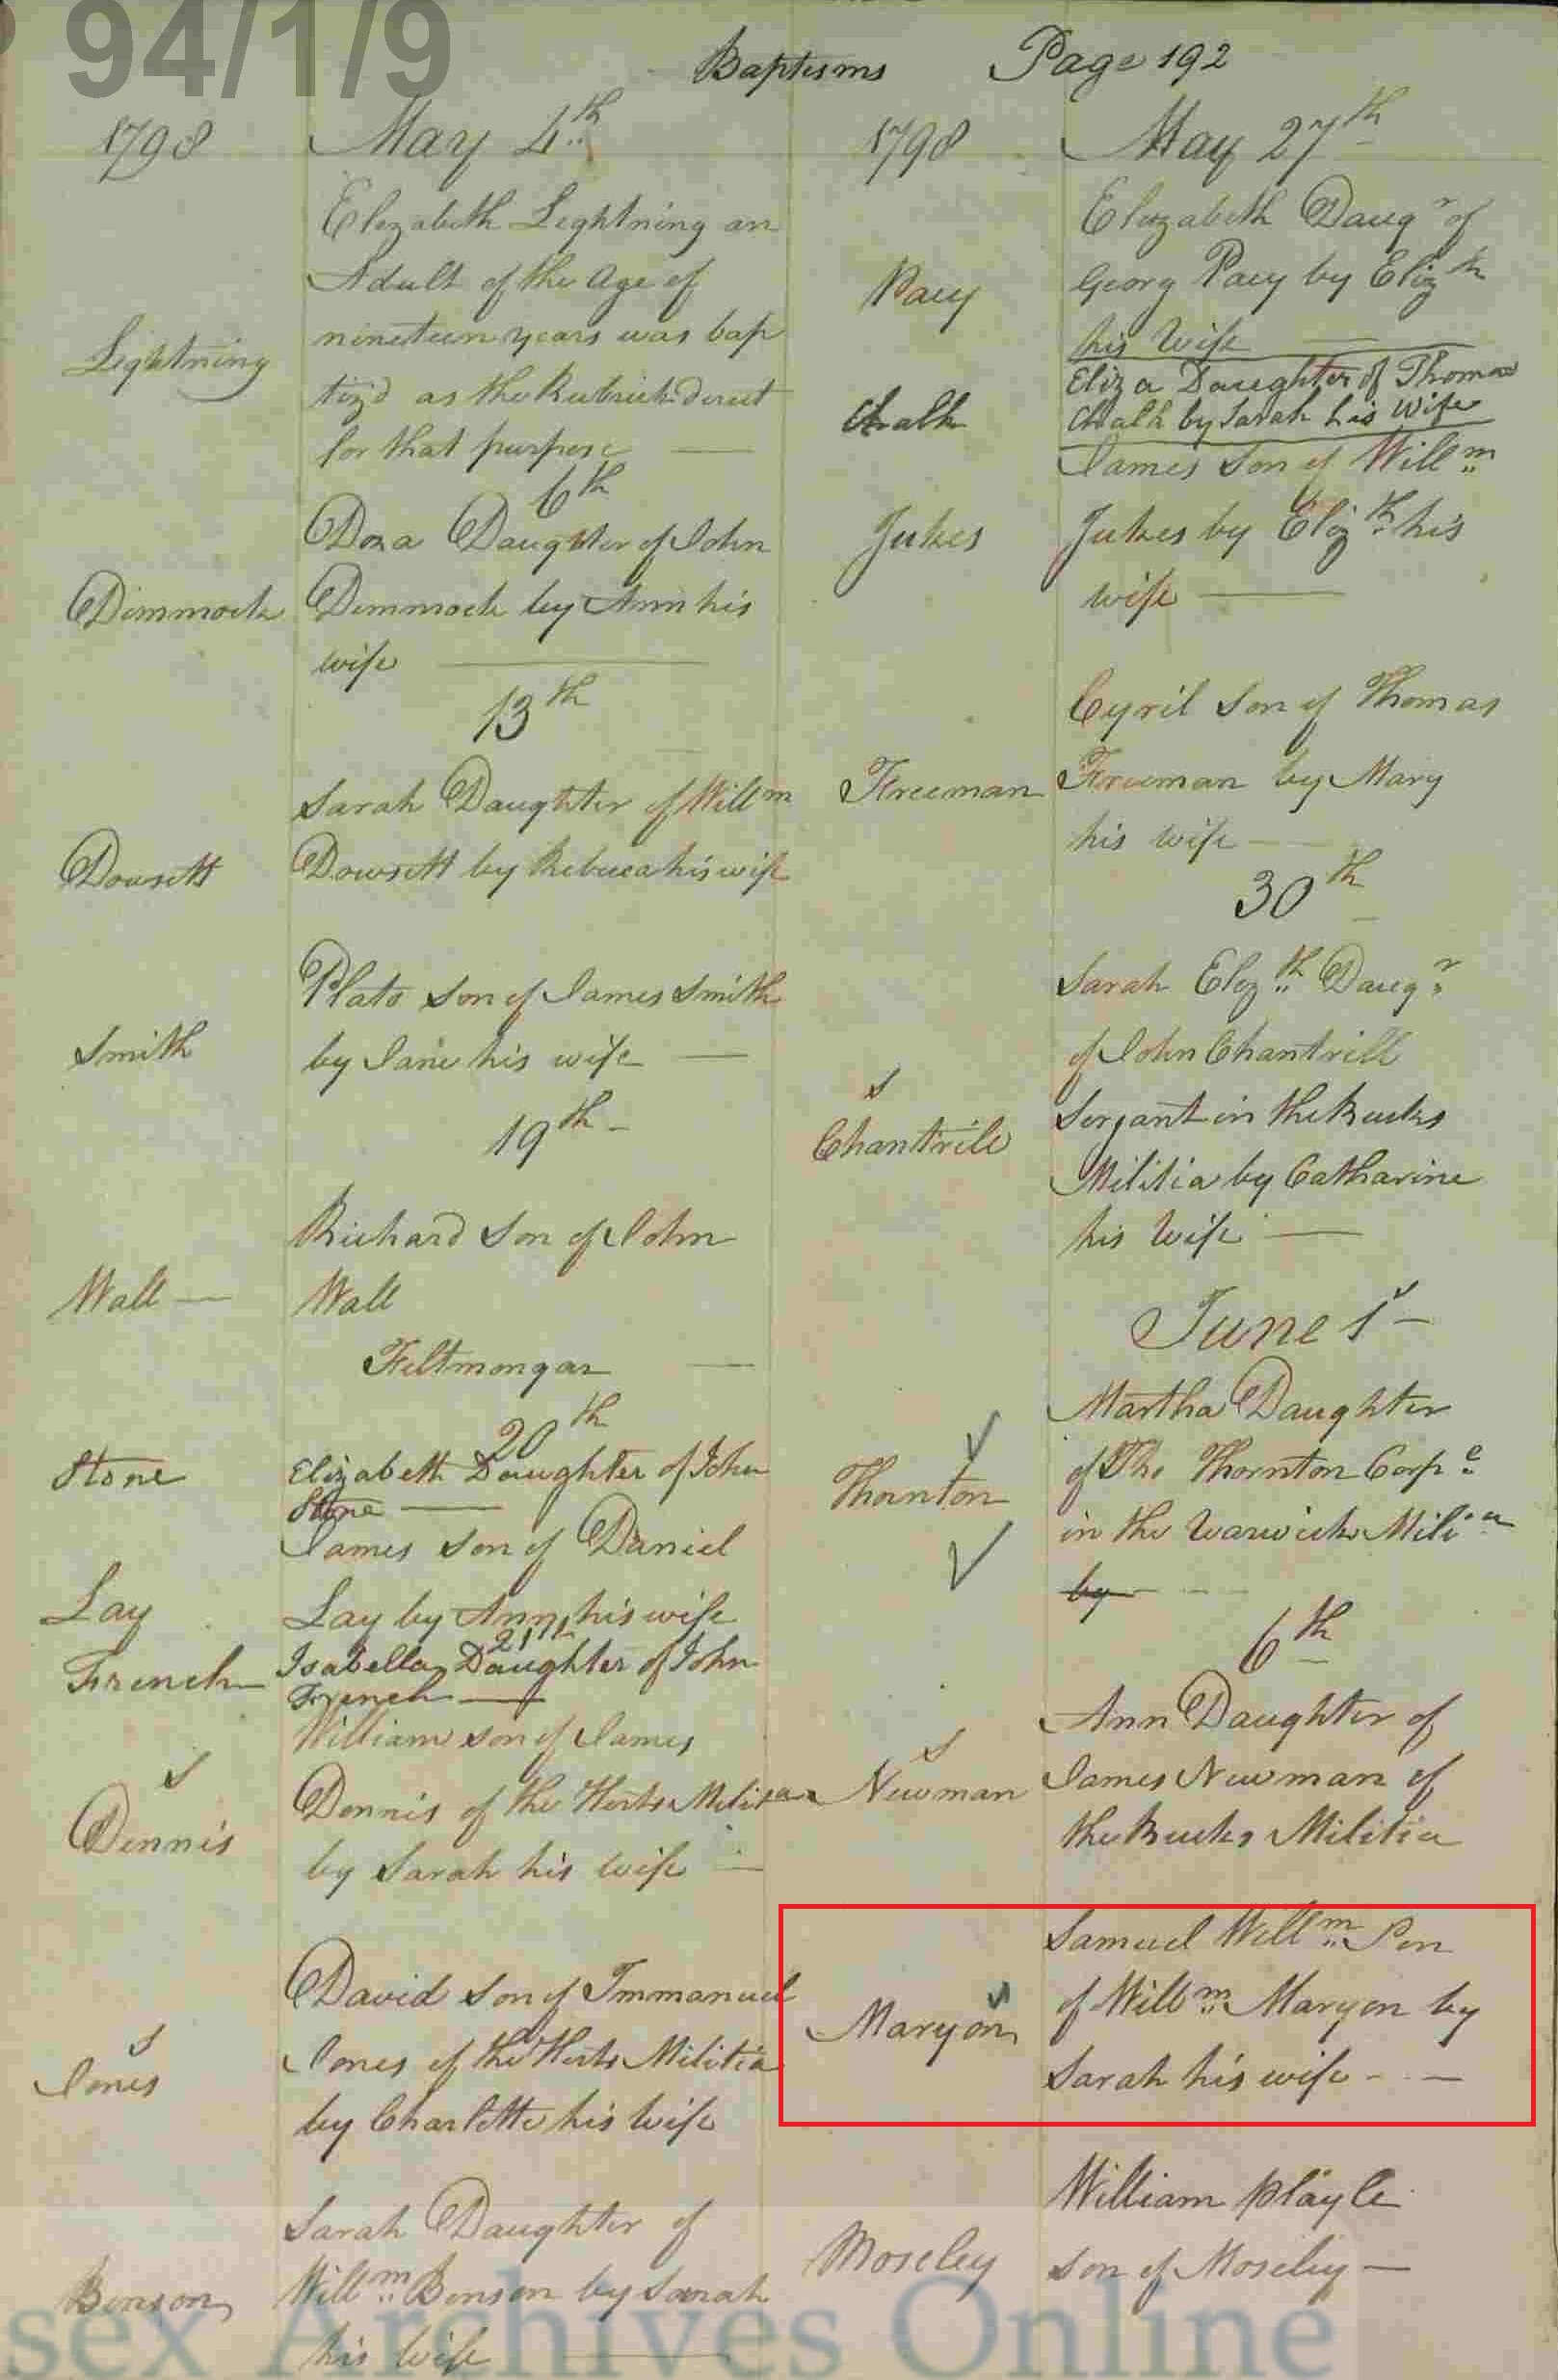 94/1/9
Baptisms Page 192
1798 May 4th
Elizabeth Lightning an
Adult of the Age of
Lightning nineteen years was bap
tiz'd as the Rubrick direct
for that purpose —
6th
Dora Daughter of John
Dimmock Dimmock by Ann his
wife —
13th
Sarah Daughter of Willm
Dowsett Dowsett by Rebecca his wife
Plato Son of James Smith
Smith by Jane his wife —
19th
Richard Son of John
Wall — Wall
Feltmongar —
20th
Stone Elizabeth Daughter of John
Stone —
James Son of Daniel
Lay Lay by Ann his wife
21st
French Isabella Daughter of John
French —
William Son of James
Dennis Dennis of the Herts Militia
by Sarah his wife —
David Son of Immanuel
Jones Jones of the Herts Militia
by Charlotte his wife
Sarah Daughter of
Benson Willm Benson by Sarah
his wife —
1798 May 27th
Elizabeth Daugr of
Pacy Georg Pacy by Elizth
his Wife —
Eliza Daughter of Thomas
Chalk Chalk by Sarah his Wife
James Son of Willm
Jukes Jukes by Elizth his
wife —
Cyril Son of Thomas
Freeman Freeman by Mary
his wife —
30th
Sarah Elizth Daugr
of John Chantrill
s Serjant in the Bucks
Chantrill Militia by Catharine
his Wife —
June 1s
Martha Daughter
Thornton of Tho Thornton Corpe
in the Warwicks Milia
by
6th
Ann Daughter of
s
Newman James Newman of
the Bucks Militia
Samuel Willm Son
Maryon of Willm Maryon by
Sarah his wife —
William playle
Moseley son of Moseley —
sex Archives Online